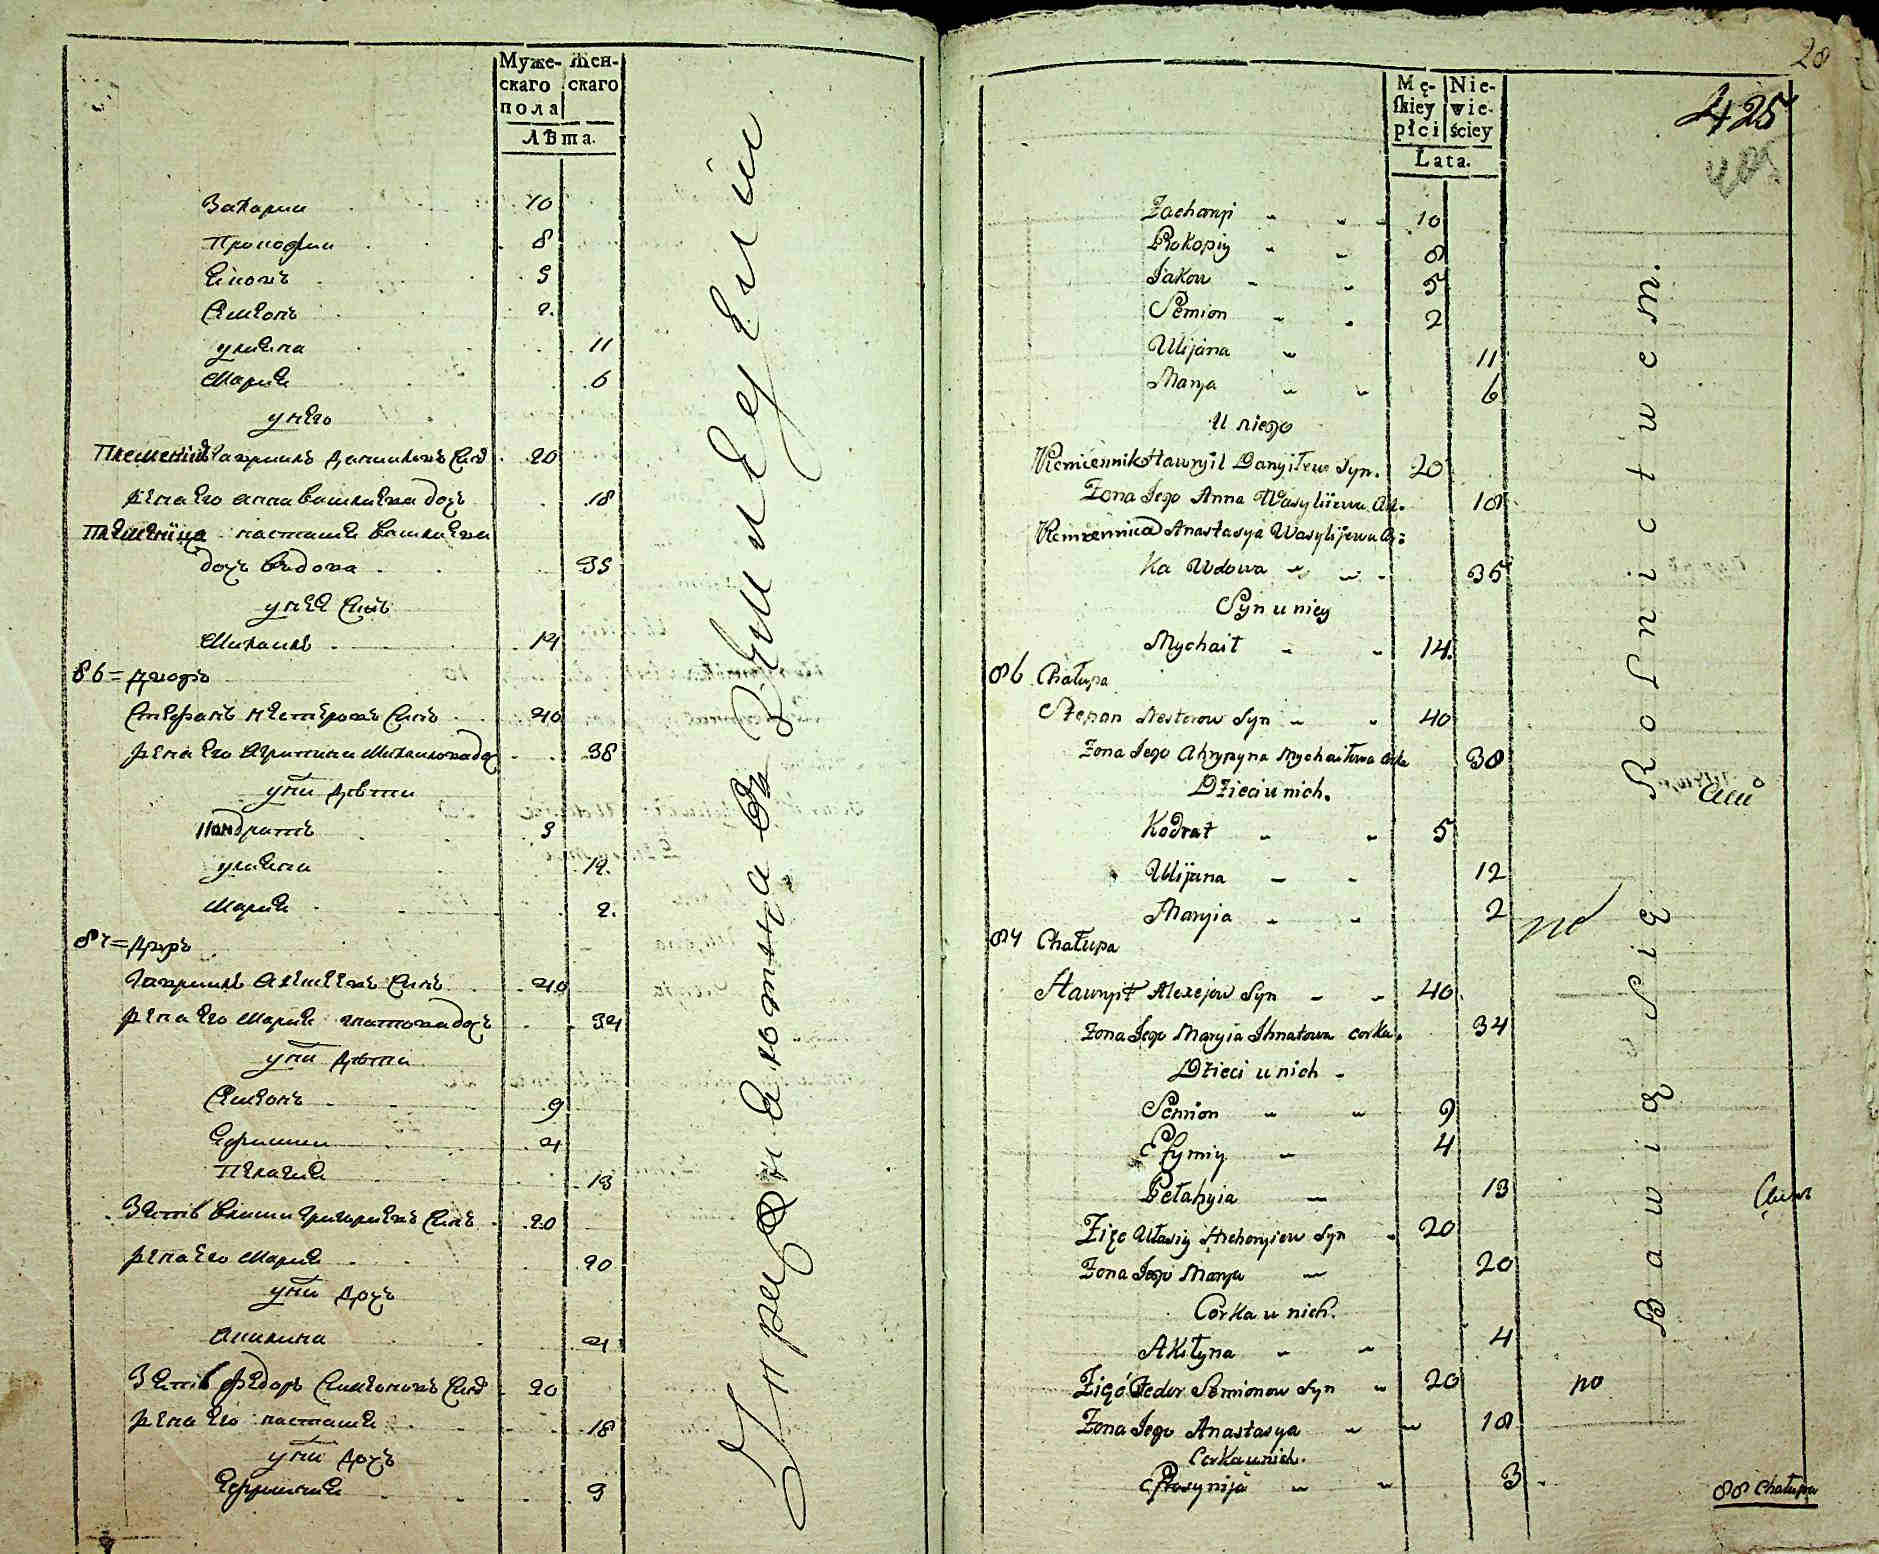 Муже- Жен-
скаго скаго
пола
Лѣта.
Захарии 10
Прокофии 8
Яковъ 5
Семенъ 2.
улияна 11
Мария 6
у него
Племенникъ Гаврилъ Даниловъ Сынъ 20
жена его анна васильева дочь 18
племеница настасия васильева
дочь вдова 35
у нее Сынъ
Михаилъ 14
86 = Дворъ
Стефанъ нестеровъ Сынъ 40
жена его Агрипина Михайлова доч 38
у них дѣти
Кондратъ 5
улияна 12.
Мария 2.
87 = Дворъ
Гаврилъ Алексеевъ Сынъ 40
жена его Мария игнатова дочъ 34
у них дѣти
Семенъ 9
Ефимии 4
Пелагия 13
Зять власии Григориевъ Сынъ 20
жена его Мария 20
у них дочъ
Акилина 4
Зять Федоръ Семеновъ Сынъ 20
жена его настасия 18
у них дочъ
Ефросиния 3
Упражняются въ Земледелии
28
425
Mę- Nie-
skiey wie-
płci ściey
Lata.
Zacharyi 10
Prokopiy 8
Jakow 5
Semion 2
Ulijana 11
Marya 6
U niego
Plemiennik Hawryił Danyiłow Syn. 20
Zona Jego Anna Wasylijewa Cór. 18
Plemiennica Anastasya Wasylijewa Cór:
ka Wdowa 35
Syn u niey
Mychaił 14.
86 Chałupa
Stepan Nesterow Syn 40
Zona Jego Ahrypyna Mychaiłowa Crka 38
Dzieci u nich.
Kodrat 5
Ulijana 12
Maryia 2
87 Chałupa
Hawryił Alexejow Syn 40
Zona Jego Maryia Ihnatowa corka. 34
Dzieci u nich
Semion 9
Efymiy 4
Pełahyia 13
Zięc Własiy Hrehoryiew Syn 20
Zona Jego Marya 20
Corka u nich.
Akiłyna 4
Zięć Fedor Semionow Syn 20 no
Zona Jego Anastasya 18
Corka u nich.
Efrosynija 3
Bawią się Rolnictwem.
88 Chałupa